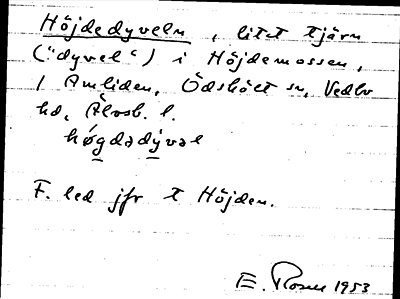 Höjdedyveln, litet tjärn
("dyvel") i Höjdemossen,
/ Amliden, Ödskölt sn, Vedbo
hd, Älvsb. l.
høgdədývəl
F. led jfr t Höjden.
E. 1953